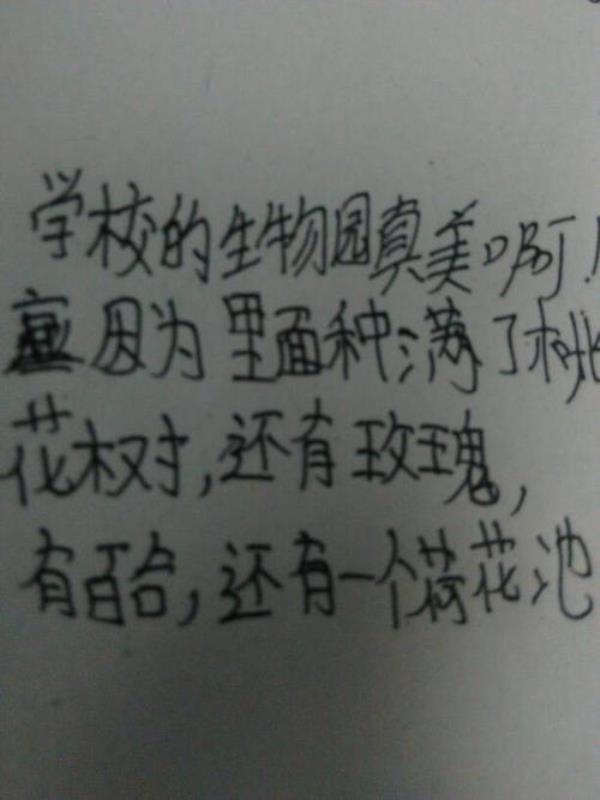 学校的生物园真美啊!
因为里面种满了桃
花树,还有玫瑰,
有百合,还有一个荷花池